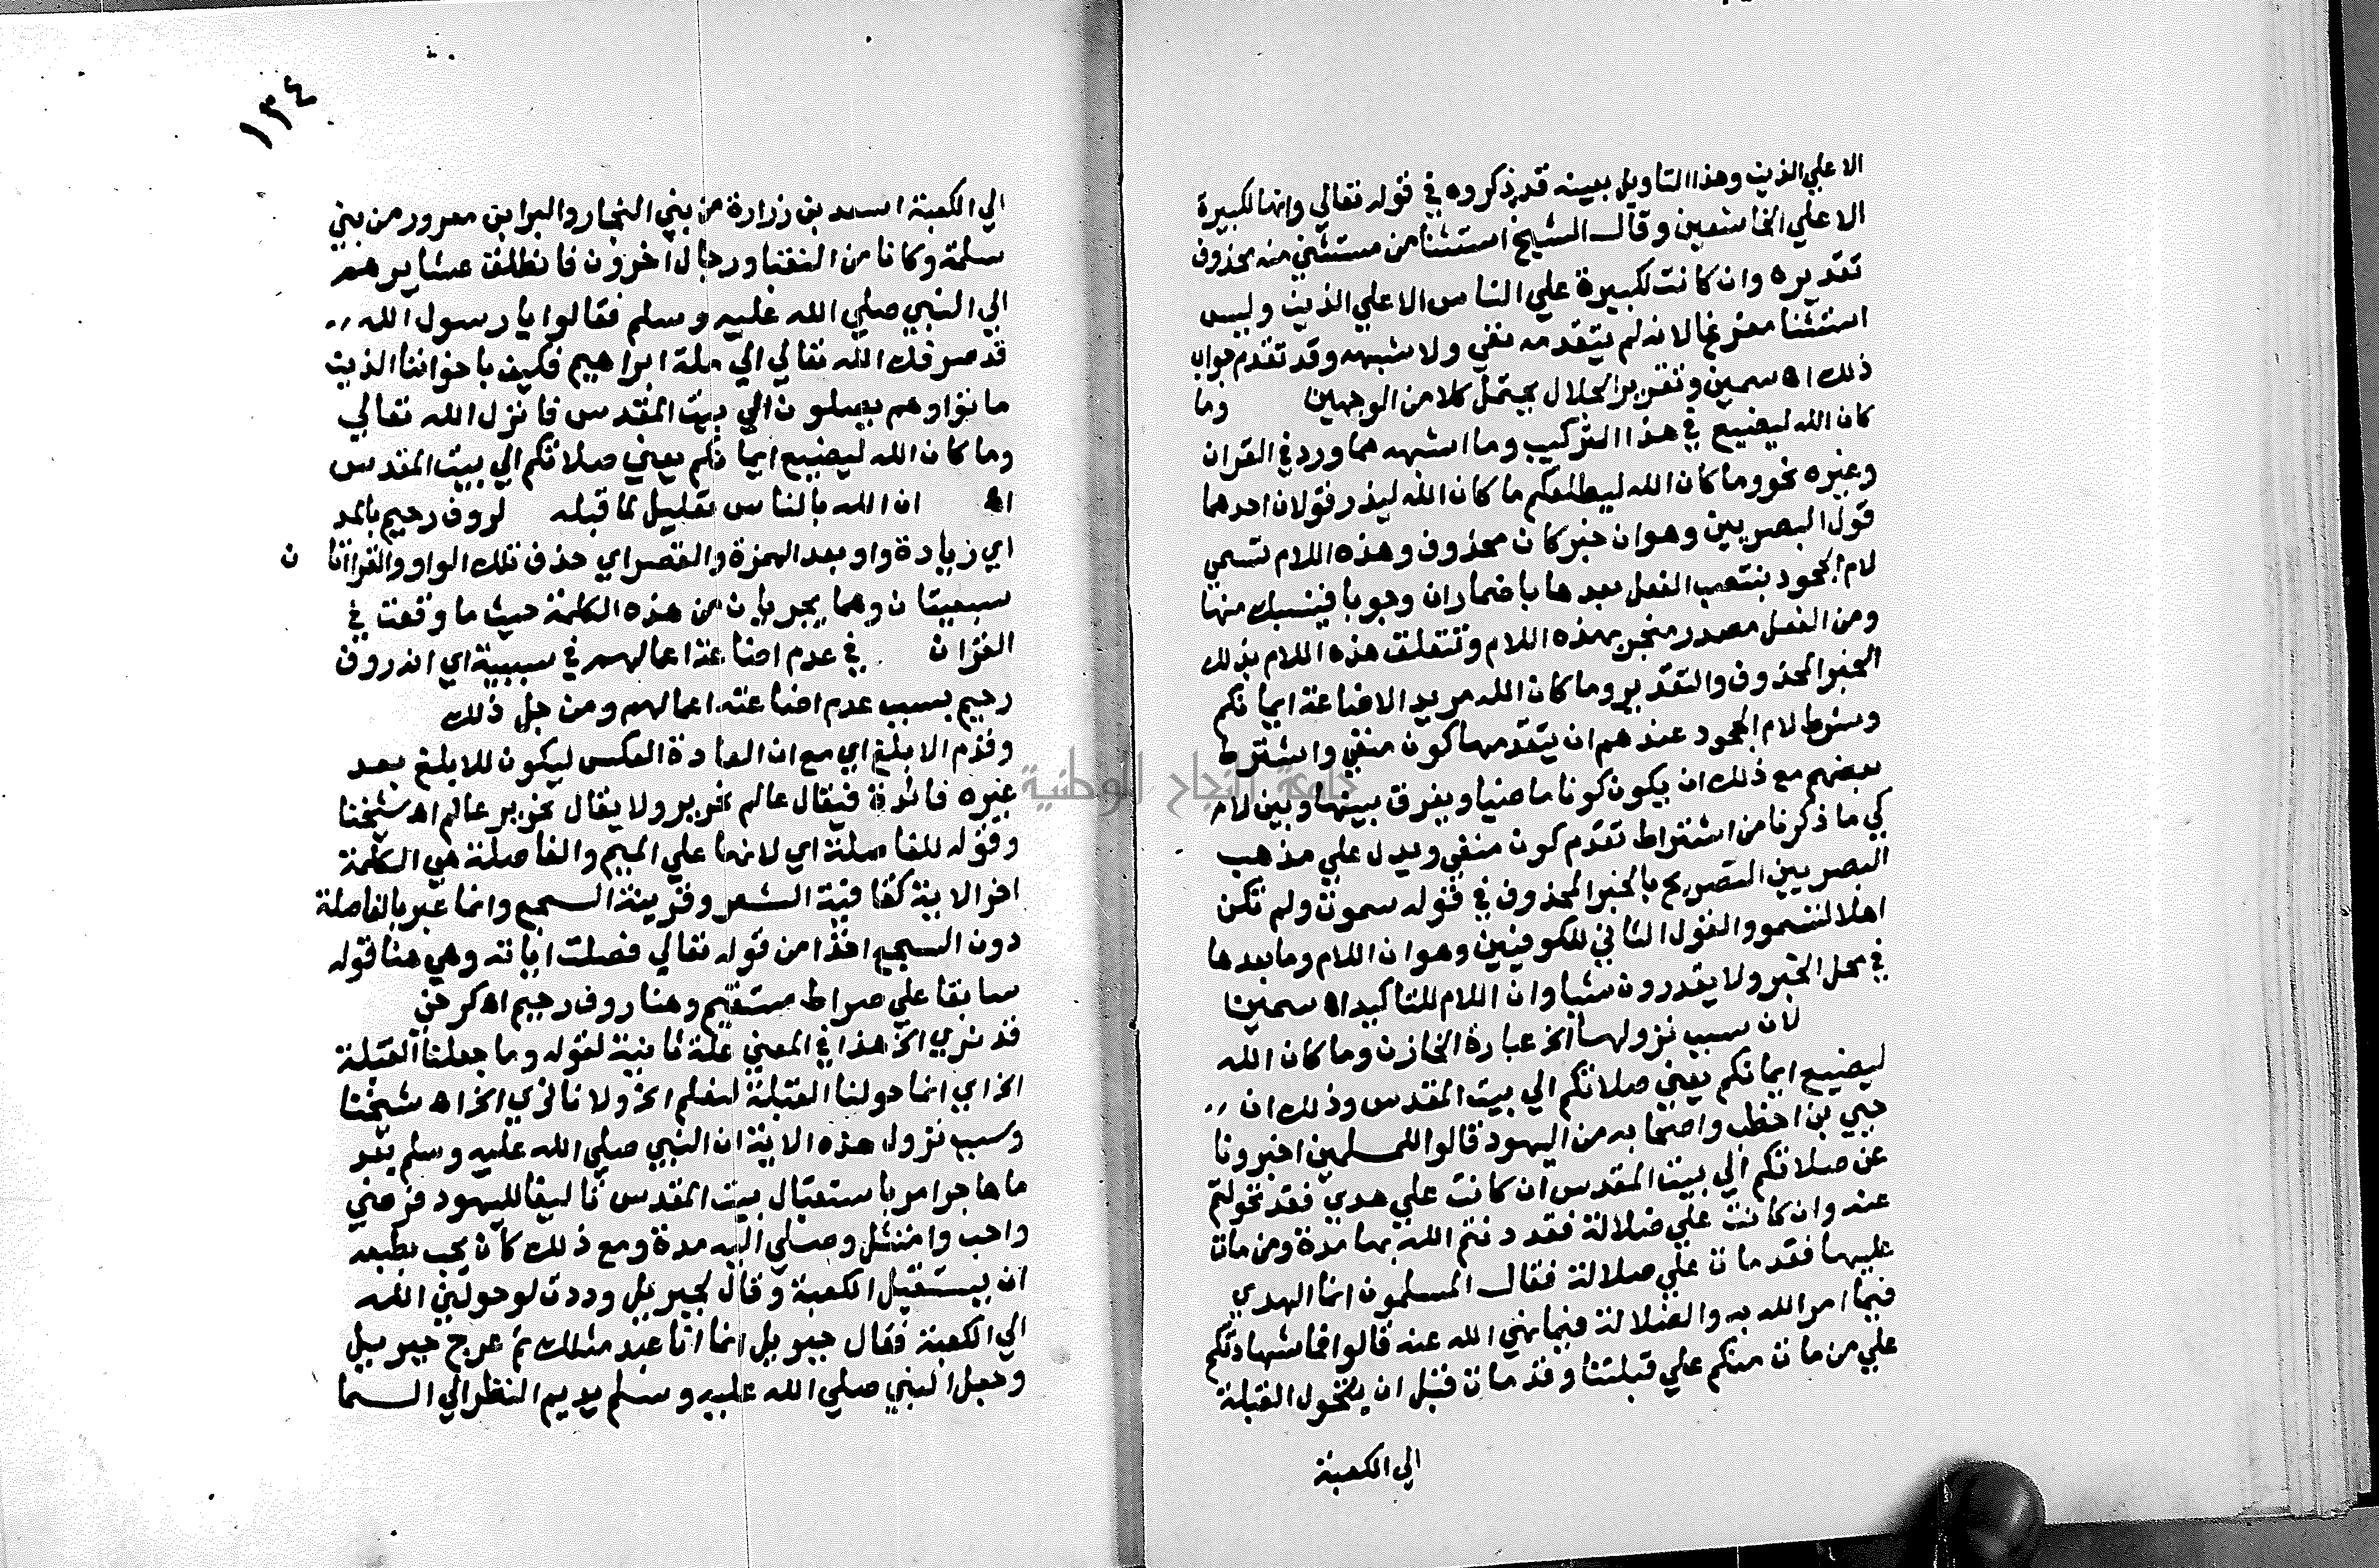 الا علي الذين وهذا التاويل بعينه قد ذكروه في قوله تعالي وانها لكبيرة
الا علي الخاشعين وقال الشيخ استثنا من مستثني منه محذوف
تقديره وان كانت لكبيرة علي الناس الا علي الذين وليس
استثنا مفرغا لانه لم يتقدمه نفي ولا شبهه وقد تقدم جواب
ذلك اه سمين وتقرير الجلال يحتمل كلا من الوجهين وما
كان الله ليضيع في هذا التركيب وما اشبهه مما ورد في القران
وغيره نحو وما كان الله ليطلعكم ما كان الله ليذر قولان احدهما
قول البصريين وهو ان خبر كان محذوف وهذه اللام تسمي
لام الجحود ينتصب الفعل بعدها باضمار ان وجوبا فينسبك منها
ومن الفعل مصدر منجر بهذه اللام وتتعلق هذه اللام بذلك
الخبر المحذوف والتقدير وما كان الله مريد الاضاعة ايمانكم
وشرط لام الجحود عندهم ان يتقدمها كون منفي واشترط
بعضهم مع ذلك ان يكون كونا ماضيا ويفرق بينها وبين لام
كي ما ذكرنا من اشتراط تقدم كون منفي ويدل علي مذهب
البصريين التصريح بالخبر المحذوف في قوله سموت ولم تكن
اهلا لتسمو والقول الثاني للكوفيين وهو ان اللام وما بعدها
في محل الخبر ولا يقدرون شيا وان اللام للتاكيد اه سمين
لان سبب نزولها الخ عبارة الخازن وما كان الله
ليضيع ايمانكم يعني صلاتكم الي بيت المقدس وذلك ان
حيي بن اخطب واصحابه من اليهود قالوا للمسلمين اخبرونا
عن صلاتكم الي بيت المقدس ان كانت علي هدي فقد تحولتم
عنه وان كانت علي ضلالة فقد دنتم الله بها مدة ومن مات
عليها فقد مات علي ضلالة فقال المسلمون انما الهدي
فيما امر الله به والضلالة فيما نهي الله عنه قالوا فما شهادتكم
علي من مات منكم علي قبلتنا وقد مات قبل ان تحول القبلة
الي الكعبة
١٣٤
الي الكعبة اسعد بن زرارة من بني النجار والبرا بن معرور من بني
سلمة وكانا من النقبا ورجال اخرون فانطلق عشايرهم
الي النبي صلي الله عليه وسلم فقالوا يا رسول الله
قد صرفك الله تعالي الي ملة ابراهيم فكيف باخواننا الذين
ماتوا وهم يصلون الي بيت المقدس فانزل الله تعالي
وما كان الله ليضيع ايمانكم يعني صلاتكم الي بيت المقدس
اه ان الله بالناس تعليل لما قبله لروف رحيم بالمد
اي زيادة واو بعد الهمزة والقصر اي حذف تلك الواو والقراتا ن
سبعيتان وهما يجريان من هذه الكلمة حيث ما وقعت في
القران في عدم اضاعة اعمالهم في سببية اي انه روف
رحيم بسبب عدم اضاعته اعمالهم ومن جل ذلك
وقدم الابلغ اي مع ان العادة العكس ليكون للابلغ بعد
غيره فائدة فيقال عالم نحرير ولا يقال نحرير عالم اه شيخنا
وقوله للفاصلة اي لانها علي الميم والفاصلة هي الكلمة
اخر الاية كقافية الشعر وقرينة السجع وانما عبر بالفاصلة
دون السجع اخذا من قوله تعالي فصلت اياته وهي هنا قوله
سابقا علي صراط مستقيم وهنا روف رحيم اه كرخي
قد نري الخ هذا في المعني علة ثانية لقوله وما جعلنا القبلة
الخ اي انما حولنا القبلة لنعلم الخ ولانا نري الخ اه شيخنا
وسبب نزول هذه الاية ان النبي صلي الله عليه وسلم بعد
ما هاجر امر باستقبال بيت المقدس تاليفا لليهود فرضي
واحب وامتثل وصلي اليه مدة ومع ذلك كان يحب بطبعه
ان يستقبل الكعبة وقال لجبريل وددت لو حولني الله
الي الكعبة فقال جبريل انما انا عبد مثلك ثم عرج جبريل
وجعل النبي صلي الله عليه وسلم يديم النظر الي السما
جامعة النجاح الوطنية